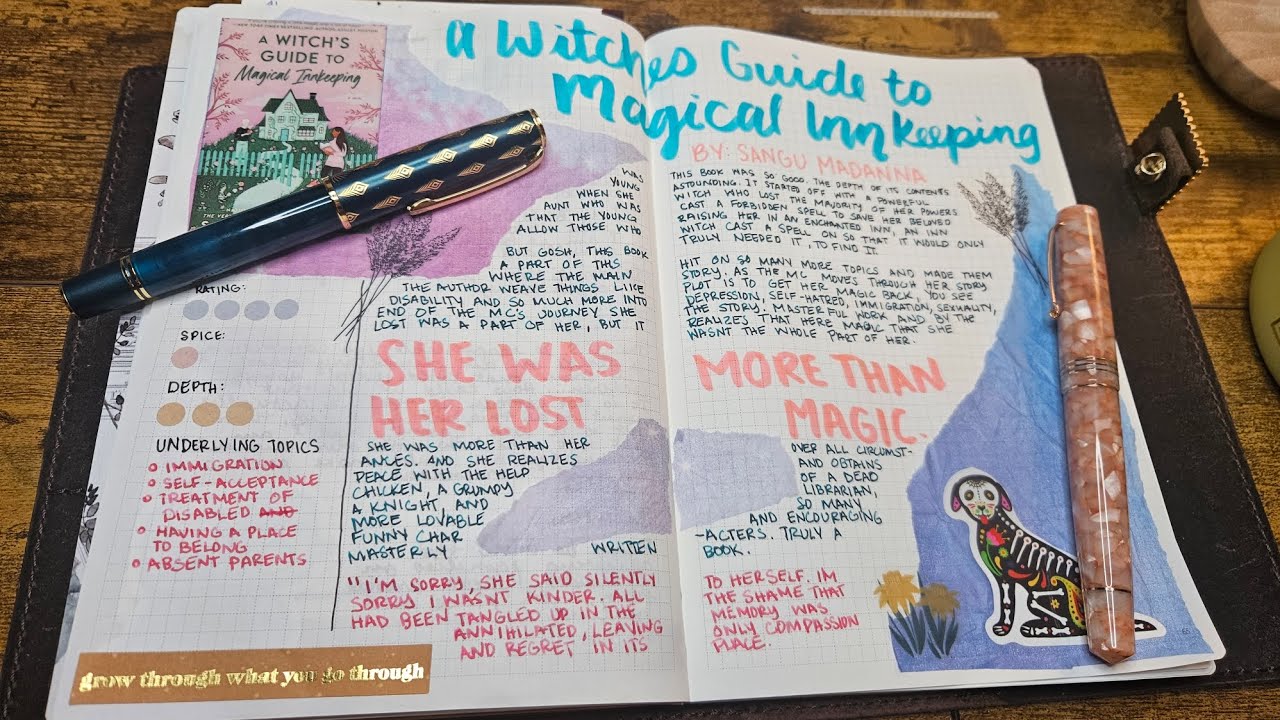 A WITCH'S
GUIDE TO
Magical Innkeeping
A Witches Guide to
Magical Inn Keeping
BY: SANGU MADANNA
THIS BOOK WAS SO GOOD. THE DEPTH OF ITS CONTENTS
WAS ASTOUNDING. IT STARTED OFF WITH A POWERFUL
YOUNG WITCH WHO LOST THE MAJORITY OF HER POWERS
WHEN SHE CAST A FORBIDDEN SPELL TO SAVE HER BELOVED
AUNT WHO WAS RAISING HER IN AN ENCHANTED INN, AN INN
THAT THE YOUNG WITCH CAST A SPELL ON SO THAT IT WOULD ONLY
ALLOW THOSE WHO TRULY NEEDED IT, TO FIND IT.
BUT GOSH, THIS BOOK HIT ON SO MANY MORE TOPICS AND MADE THEM
A PART OF THIS STORY. AS THE MC MOVES THROUGH HER STORY
WHERE THE MAIN PLOT IS TO GET HER MAGIC BACK, YOU SEE
THE AUTHOR WEAVE THINGS LIKE DEPRESSION, SELF-HATRED, IMMIGRATION, SEXUALITY,
DISABILITY AND SO MUCH MORE INTO THE STORY. MASTERFUL WORK. AND BY THE
END OF THE MC'S JOURNEY SHE REALIZES THAT HERE MAGIC THAT SHE
LOST WAS A PART OF HER, BUT IT WASNT THE WHOLE PART OF HER.
SHE WAS MORE THAN
HER LOST MAGIC.
SHE WAS MORE THAN HER OVER ALL CIRCUMST-
ANCES. AND SHE REALIZES AND OBTAINS
PEACE WITH THE HELP OF A DEAD
CHICKEN, A GRUMPY LIBRARIAN,
A KNIGHT, AND SO MANY
MORE LOVABLE AND ENCOURAGING
FUNNY CHAR -ACTERS. TRULY A
MASTERLY WRITTEN BOOK.
"I'M SORRY, SHE SAID SILENTLY TO HERSELF. IM
SORRY I WASNT KINDER. ALL THE SHAME THAT
HAD BEEN TANGLED UP IN THE MEMORY WAS
ANNIHILATED, LEAVING ONLY COMPASSION
AND REGRET IN ITS PLACE.
RATING:
SPICE:
DEPTH:
UNDERLYING TOPICS
IMMIGRATION
SELF-ACCEPTANCE
TREATMENT OF
DISABLED AND
HAVING A PLACE
TO BELONG
ABSENT PARENTS
grow through what you go through